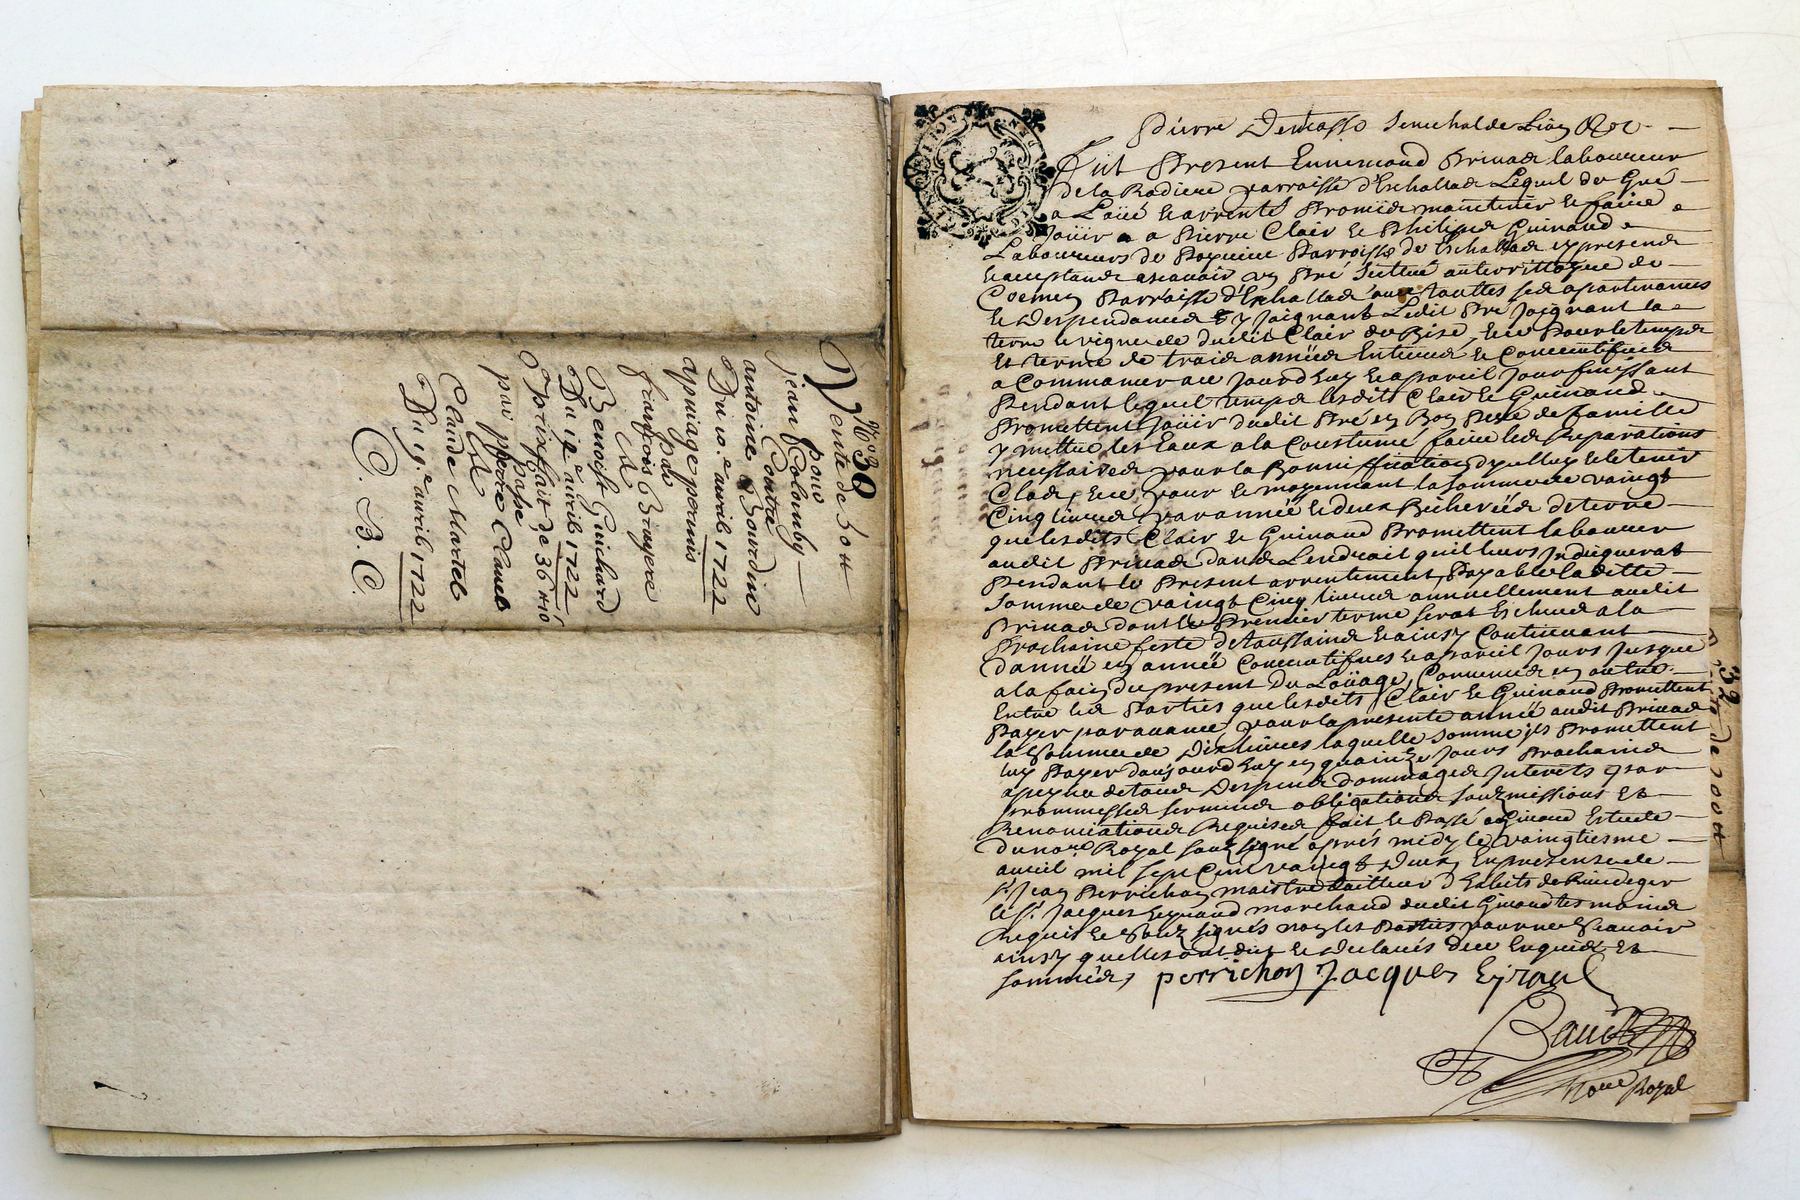 N.º 30
Vente de 50 tt
pour
jean Colomby
Contre
antoine Bourdin
Du 10.e avril 1722
apuiage promis
Par
françois Bruyere
Et
Benoist Guichard
Du i9.e avril 1722
prixffait de 36 tt 10 s
Passe
par pierre Clauel
Et
Claude Martel
Du i9.e avril 1722
C. B. C.
Pierre Demasso Senechal de Lion &c.
fut Present Ennemond Privas laboureur
de la Rodiere parroisse d'Eschallas Lequel de Gré
a Loüé et arrenté Promis maintenir et faire
Joüir a Pierre Clair et Philipe Guinand
Laboureurs de Parroisse de Eschallas cy presens
et aceptans ascavoir un Pré Scitué au territtoyre de
Parroisse d'Eschallas avec touttes ses apartenances
et Despendances Joignant Ledit Pré Joignant la
terre et vigne de dudit Clair de Bise, et ce Pour le temps
et terme de trois années Entieres et Consecutifues
a Commancer ce Jourdhuy et a pareil Jour finissant
Pendant lequel temps lesdits Clair et Guinand
Promettent Joüir dudit Pré en Bon Pere de famille
y mettre les Eaux a la Coustume faire les Reparations
necessaires pour la Boniffication dycelluy et le tenir
Clos, et ce pour et moyennant la somme de vaingt
Cinq livres par année et deux Bicherées de terre
que lesdits Clair et Guinand Promettent labourer
audit Privas dans Lendroit quil leurs Indiquerat
Pendant le Present arrentement, Payable laditte
Somme de vaingt Cinq livres annuellement audit
Privas dont le Premier terme serat Escheus a la
Prochaine feste de toussaine et ainsy Continuant
dannée en année Consecutifues et a pareil Jours Jusque
a la fain du present Du Loüage, Convenus en outre
Entre les Parties que lesdits Clair et Guinand Promettent
Payer par avance pour la presente année audit Privas
la Somme de Dix livres laquelle Somme ils Promettent
luy Payer daujourdhuy en quainze Jours Prochains
a peyne de tous Despens dommages Interets par
prommesses sermens obligations soubzmissions Et
Renonciations Requises fait et Passé a Givord Estude
du no.re Royal soubzsigné aprés midy le vaingtiesme
avril mil sept Cent vaingt & deux En presence de
s.r Jean Perrichon maistre tailleur d'Habits de Rivedegier
et s.r Jacques Eyraud marchand dudit Givord tesmoins
Requis et soubzsignés non les Parties pour ne scavoir
ainsy quelles ont dit et declarés de ce Enquis et
sommés,
perrichon Jacques Eyraud
no.re Royal
32